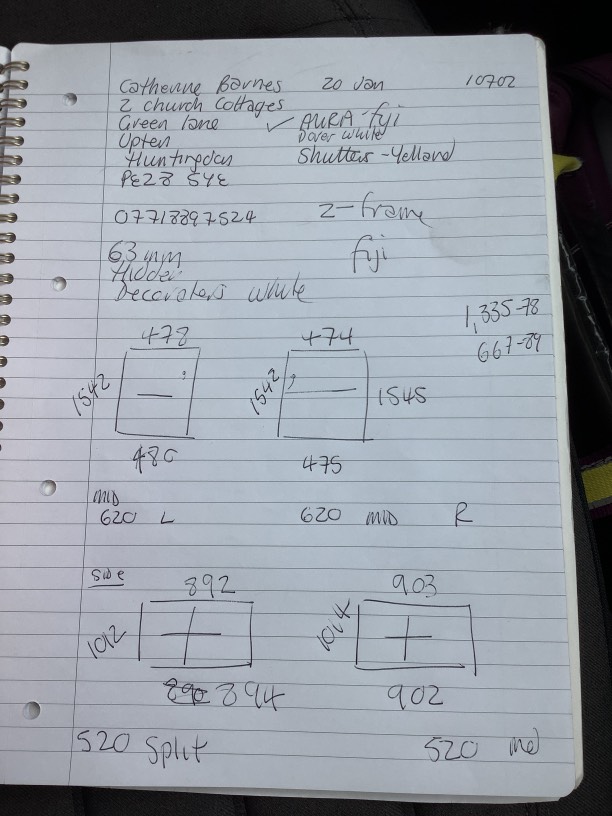 Catherine Barnes 20 Jan 10702
2 church Cottages
Green lane ✓ AURA-fiji
Upten Dover white
Huntingdon Shutters - Yelland
PE28 5YE
07718897524 Z-frame
63 mm fiji
Hidden
Decorators white
1,335-78
667-89
478 474
1542 1542 1545
480 475
MID
620 L 620 MID R
892 903
1012 1014
890 894 902
520 Split 520 Mid